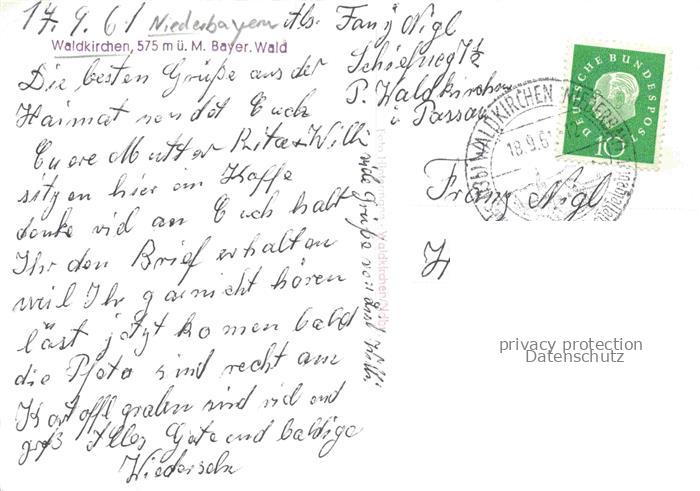 17.9.61 Niederbayern
Waldkirchen, 575 m ü. M. Bayer. Wald
Die besten Grüße aus der
Heimat sendet Euch
Euere Mutter Rita + Willi
sitzen hier im Kaffe
denke viel an Euch habt
Ihr den Brief erhalten
weil Ihr garnicht hören
läst jetzt komen bald
die Pfoto sind recht am
Kartoffl graben sind viel und
groß Alles Gute und baldige
Wiedersehn
viele Grüße von Willi
Abs. Nigl
P. Waldkirchen
Passau
Franz Nigl
WALDKIRCHEN
18.9.61
DEUTSCHE BUNDESPOST
10
Waldkirchen/Ndb.
privacy protection
Datenschutz